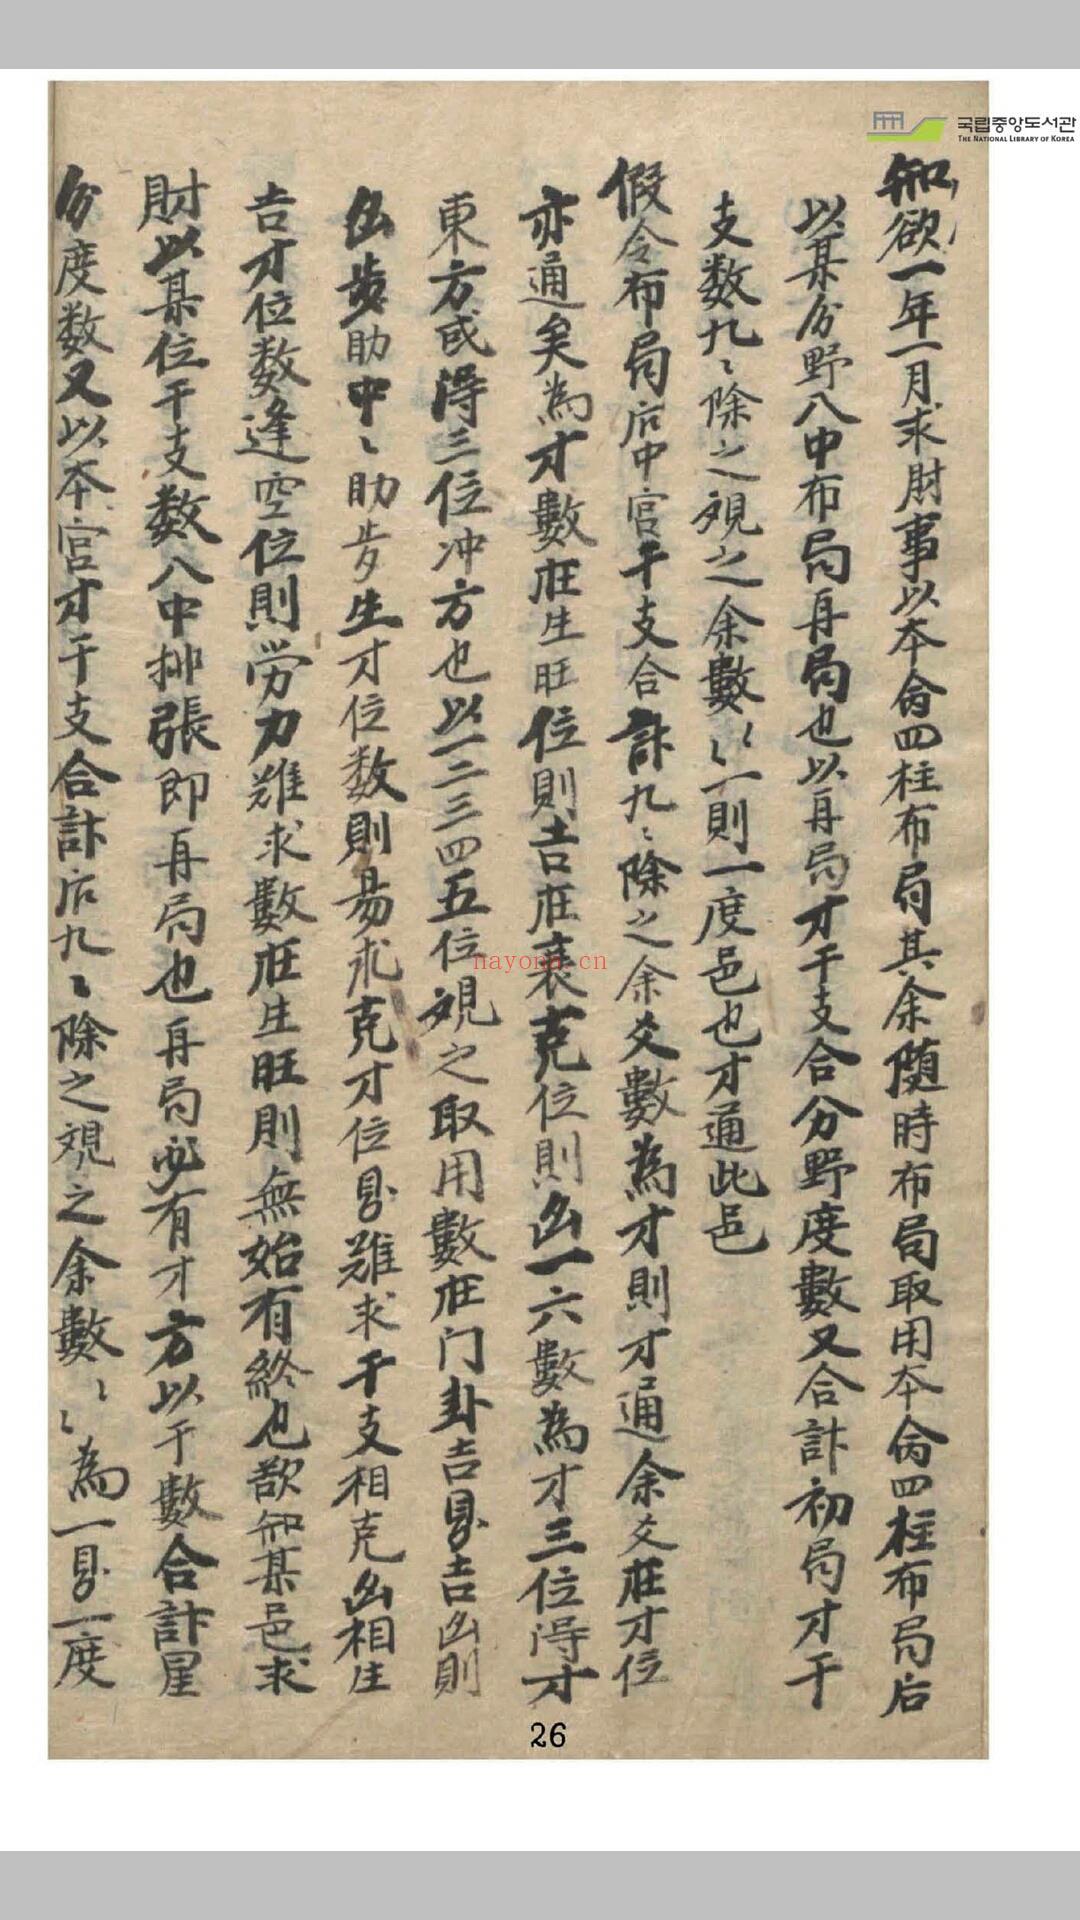 국립중앙도서관
THE NATIONAL LIBRARY OF KOREA
知欲一年一月求財事以本命四柱布局其余随時布局取用本命四柱布局后
以某分野八中布局再局也以再局才干支合分野度數又合計初局才干
支数九〻除之視之余數〻一則一度邑也才通此邑
假令布局后中宮干支合計九〻除之余爻數為才則才通余爻在才位
亦通矣為才數在生旺位則吉在衰克位則凶一六數為才三位得才
東方或得三位冲方也以一二三四五位視之取用數在门卦吉星吉凶則
凶步助中〻助步生才位数則易求克才位星難求干支相克凶相生
吉才位数逢空位則労力难求數在生旺則無始有終也欲知某邑求
財以某位干支数八中排張即再局也再局必有才方以干數合計星
分度数又以本宮才干支合計后九〻除之視之余數〻為一星一度
nayona.cn
26